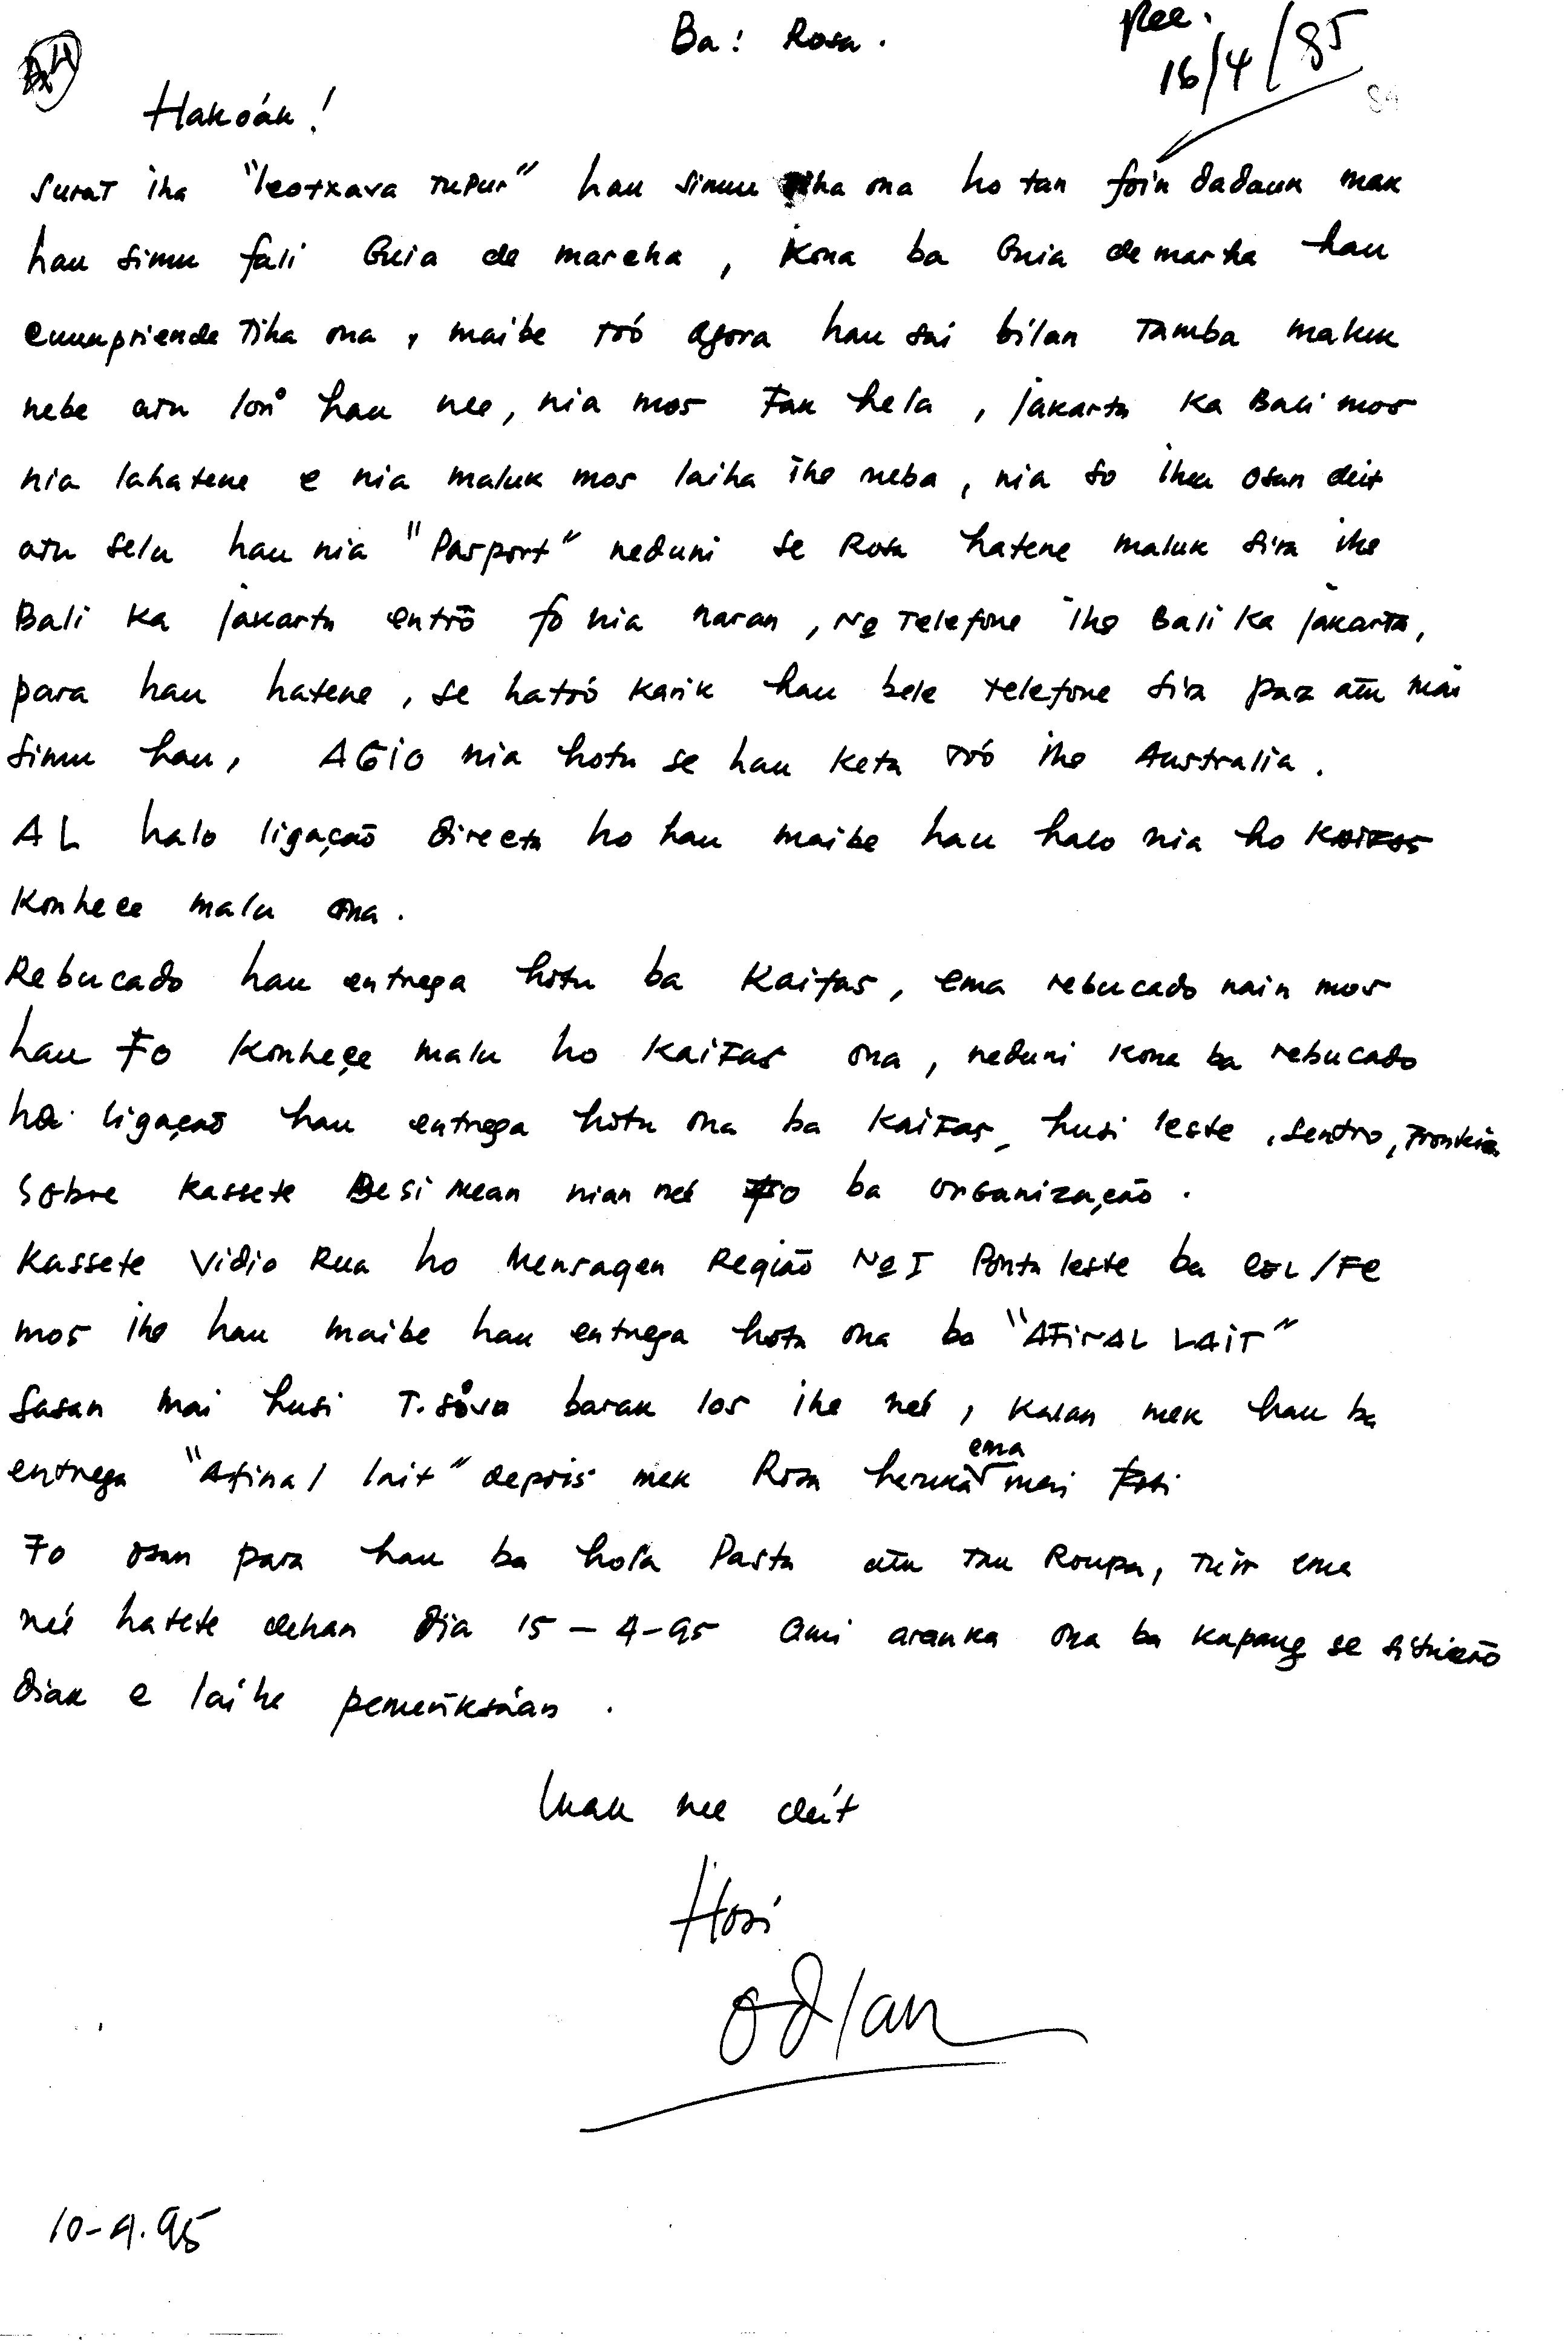 Ba: Rosa.
Rec.
16/4/85
Hakoák!
Surat iha "leotxava Tupur" hau simu tiha ona ho tan foin dadaun mak
hau simu fali Guia de marcha, kona ba Guia de marha hau
cuumpriende Tiha ona, maibe too agora hau sai bilan Tamba maluk
nebe atu lori hau nee, nia mos Fak hela, jakarta ka Bali mos
nia lahatene e nia maluk mos laiha ihe neba, nia so ihea osan deit
atu selu hau nia "Pasport" neduni se Rosa hatene maluk sira ihe
Bali ka jakarta entrõ fo nia naran, No Telefone ihe Bali ka jakarta,
para hau hatene, se hatoó karik hau bele telefone sira para atu mai
simu hau, AGiO nia hotu se hau keta toó ihe Australia.
AL halo ligação directa ho hau maibe hau halo nia ho Kaifas
Konhece malu ona.
Rebucado hau entrega hotu ba Kaifas, ema rebucado nain mos
hau Fo Konheçe malu ho KaiFas ona, neduni kona ba rebucado
ho ligação hau entrega hotu ona ba KaiFas, husi leste, sentro, Fronteira
Sobre Kassete Besi mean nian neé Fo ba organização.
Kassete Vidio Rua ho Mensagen Região No I Ponta leste ba CEL/FE
mos ihe hau maibe hau entrega hotu ona ba "AFiNAL LAiT"
Sasan mai husi T. barak los ihe neé, kalan mek hau ba
entrega "Afinal lait" depois mek Rosa haruka ema mai
Fo osan para hau ba hola Pasta atu tau Roupa, tuir ema
neé hatete dehan dia 15-4-95 ami aranka ona ba kupang se situiaçõ
diak e laihe pemeriksáan.
Mak nee deit
Hosi
Odlan
10-4.95